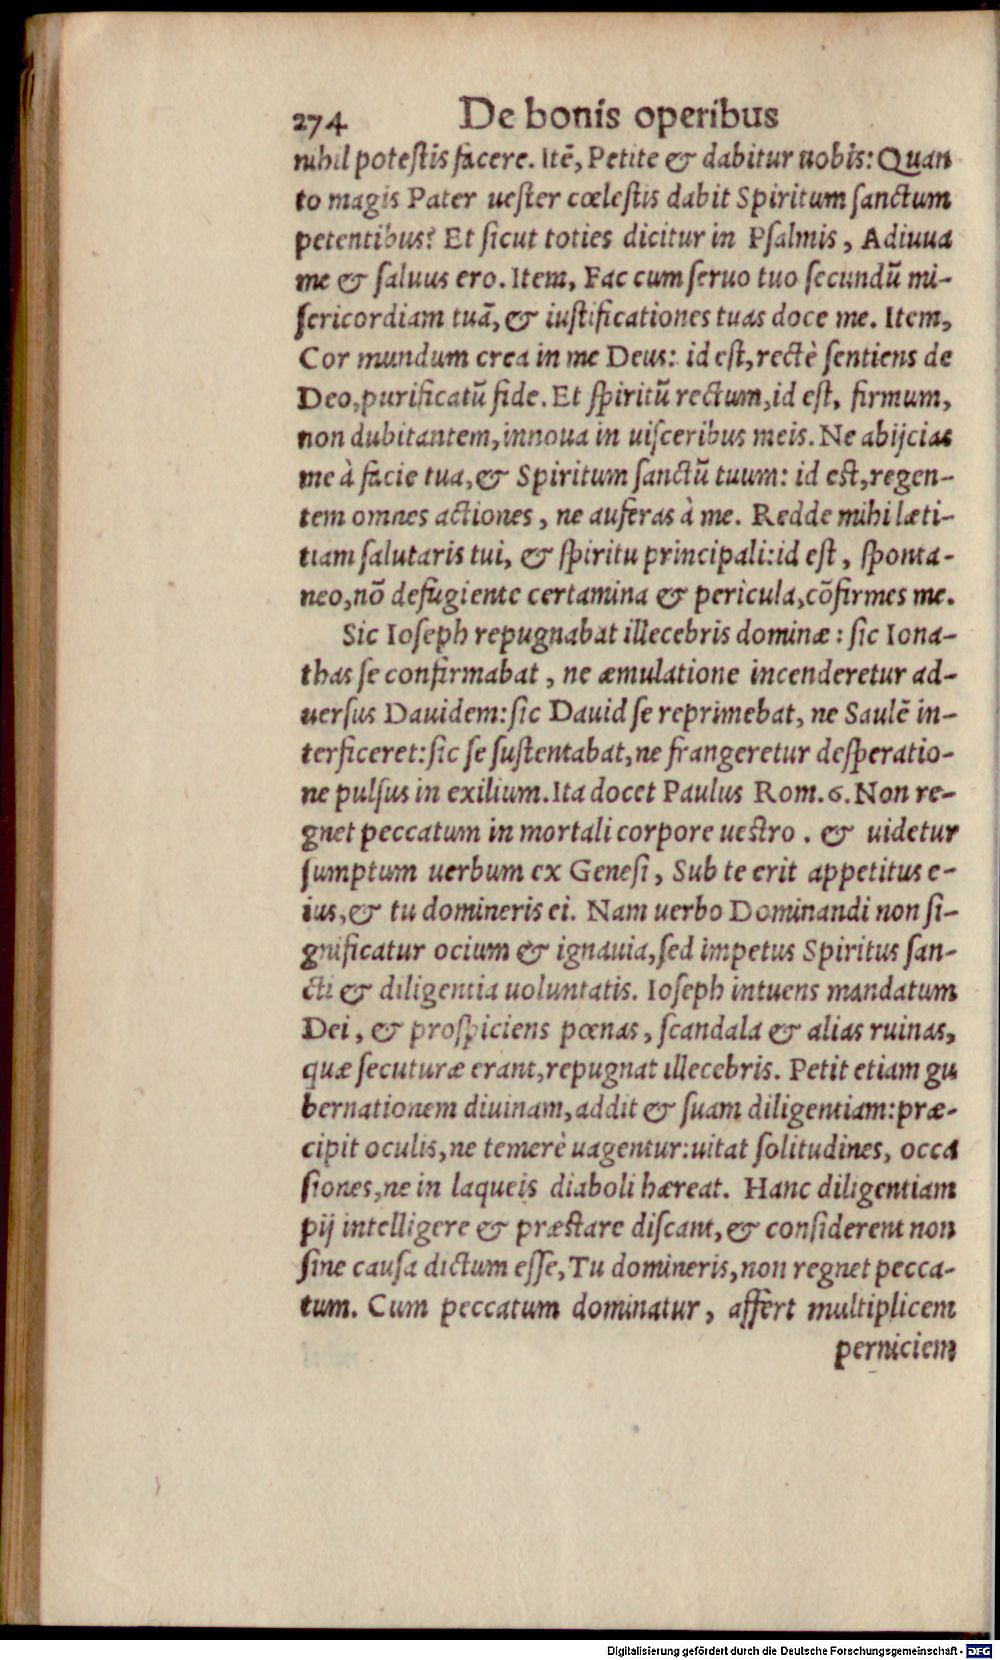 274 De bonis operibus
nihil potestis facere. Itē, Petite & dabitur uobis: Quan
to magis Pater uester cœlestis dabit Spiritum sanctum
petentibus? Et sicut toties dicitur in Psalmis, Adiuua
me & saluus ero. Item, Fac cum seruo tuo secundū mi-
sericordiam tuā, & iustificationes tuas doce me. Item,
Cor mundum crea in me Deus: id est, rectè sentiens de
Deo, purificatū fide. Et spiritū rectum, id est, firmum,
non dubitantem, innoua in uisceribus meis. Ne abijcias
me à facie tua, & Spiritum sanctū tuum: id est, regen-
tem omnes actiones, ne auferas à me. Redde mihi læti-
tiam salutaris tui, & spiritu principali: id est, sponta-
neo, nō defugiente certamina & pericula, cōfirmes me.
Sic Ioseph repugnabat illecebris dominæ: sic Iona-
thas se confirmabat, ne æmulatione incenderetur ad-
uersus Dauidem: sic Dauid se reprimebat, ne Saulē in-
terficeret: sic se sustentabat, ne frangeretur desperatio-
ne pulsus in exilium. Ita docet Paulus Rom. 6. Non re-
gnet peccatum in mortali corpore uestro. & uidetur
sumptum uerbum ex Genesi, Sub te erit appetitus e-
ius, & tu domineris ei. Nam uerbo Dominandi non si-
gnificatur ocium & ignauia, sed impetus Spiritus san-
cti & diligentia uoluntatis. Ioseph intuens mandatum
Dei, & prospiciens pœnas, scandala & alias ruinas,
quæ secuturæ erant, repugnat illecebris. Petit etiam gu
bernationem diuinam, addit & suam diligentiam: præ-
cipit oculis, ne temerè uagentur: uitat solitudines, occa
siones, ne in laqueis diaboli hæreat. Hanc diligentiam
pij intelligere & præstare discant, & considerent non
sine causa dictum esse, Tu domineris, non regnet pecca-
tum. Cum peccatum dominatur, affert multiplicem
perniciem
Digitalisierung gefördert durch die Deutsche Forschungsgemeinschaft - DFG